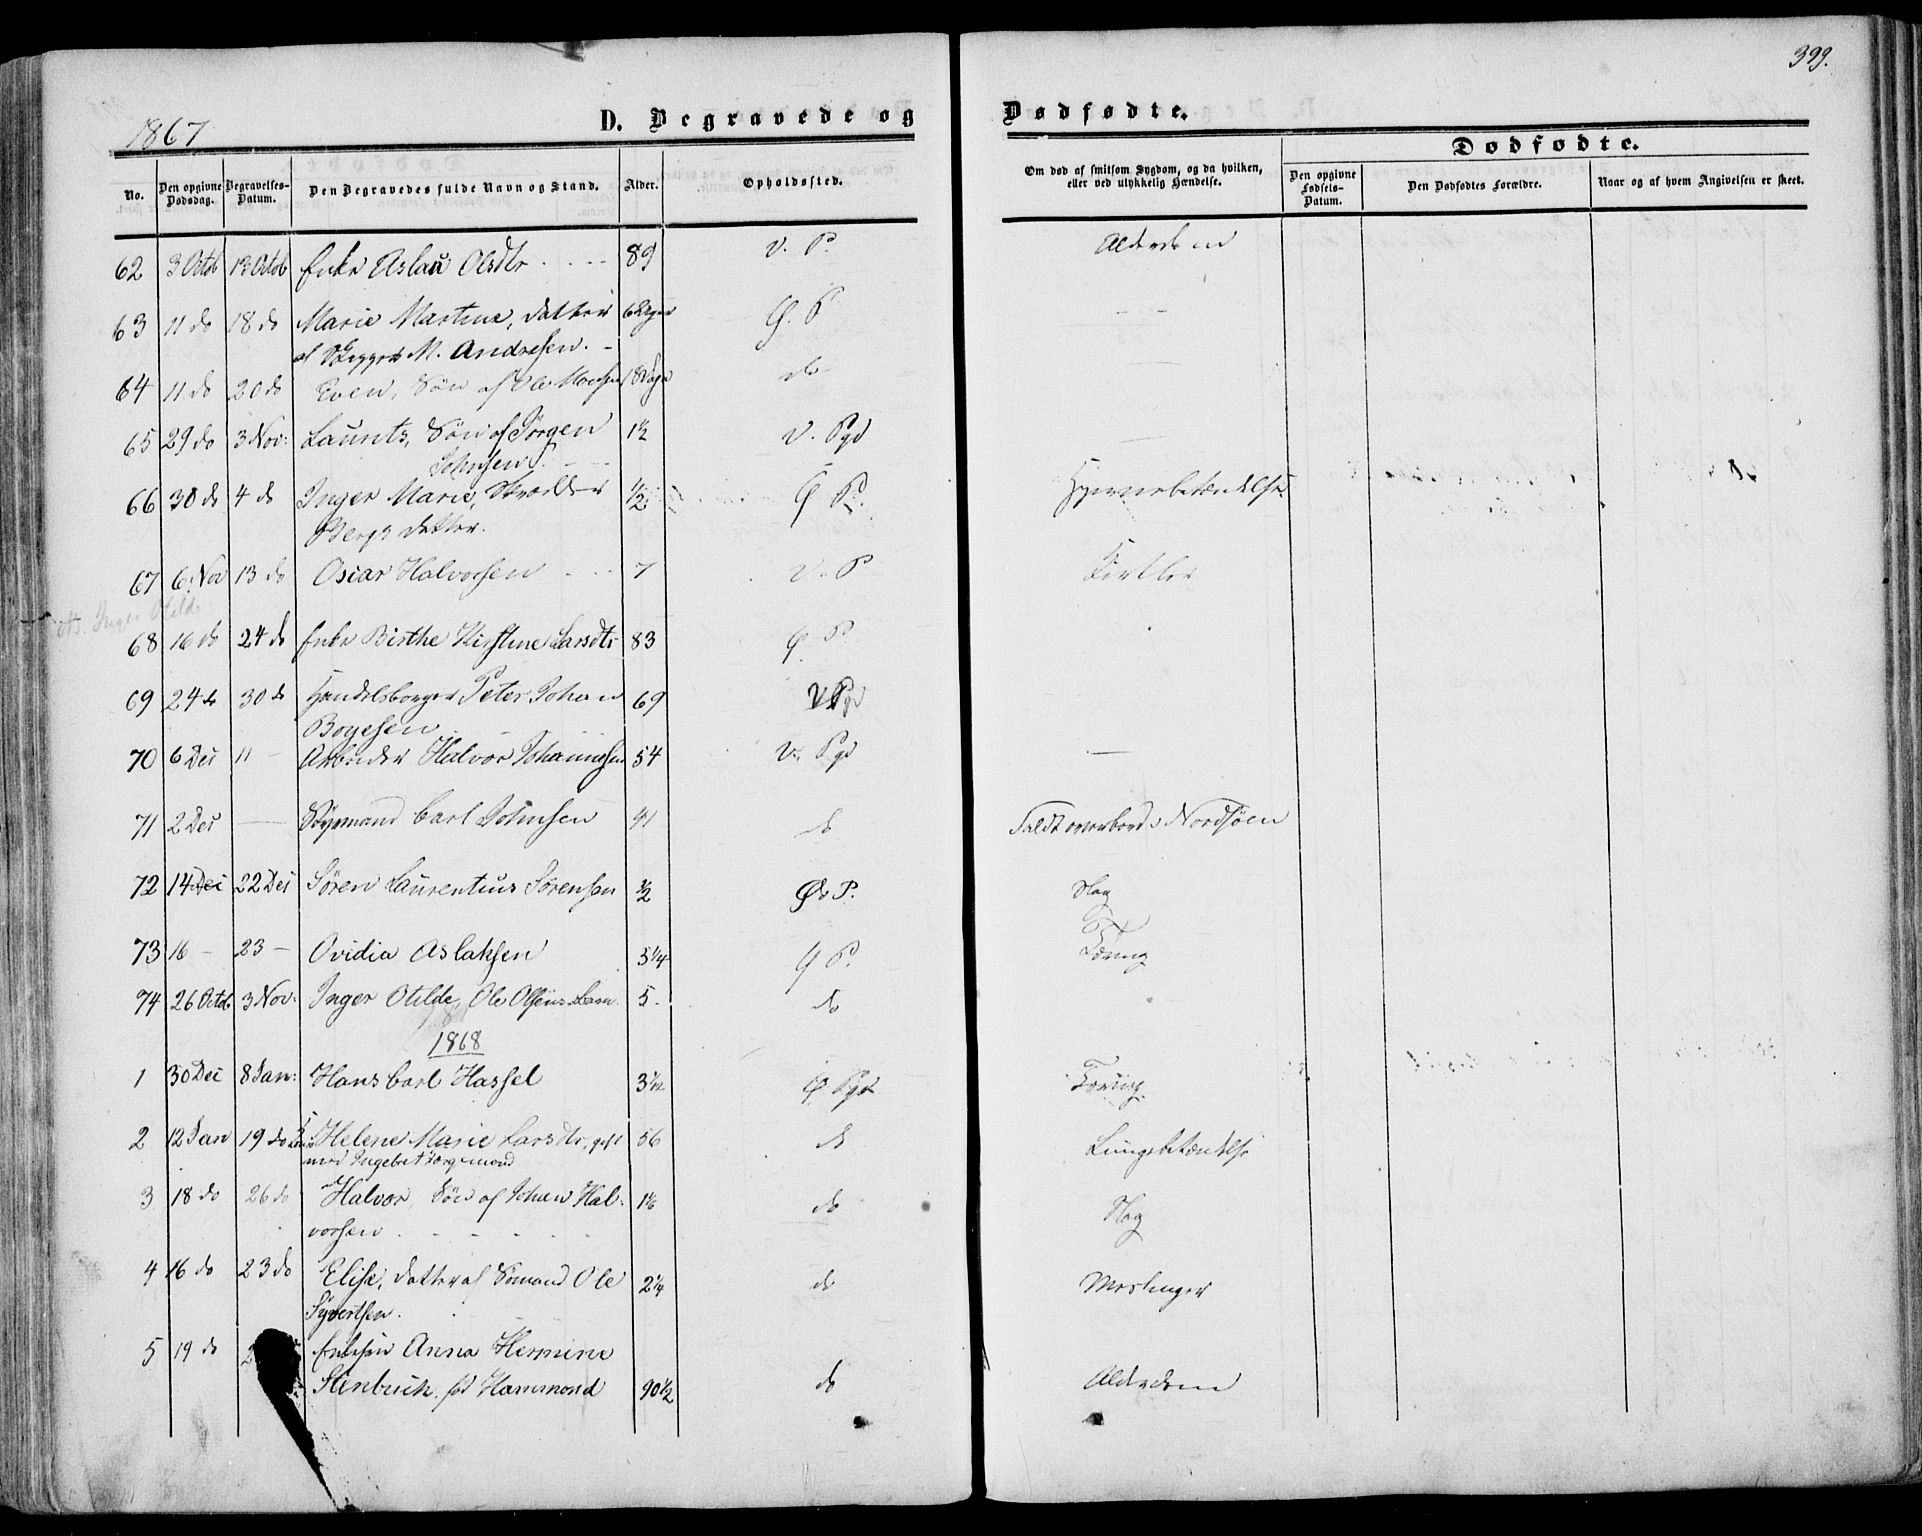 399.
1867
D. Begravede og Dødfødte.
Dødfødte.
No. Den opgivne Dødsdag. Begravelses-Datum. Den Begravedes fulde Navn og Stand. Alder. Opholdssted. Om død af smitsom Sygdom, og da hvilken, eller ved ulykkelig Hændelse. Den opgivne Fødsels-Datum. Den Dødfødtes Forældre. Naar og af hvem Angivelsen er skeet.
62 3 Octob 13 Octob Enke Aslau Olsdtr 89 V. P. Alderdom
63 11 do 18 do Marie Martine, Datter Ø. P
af M. Andresen.
64 11 do 20 do Even, Søn af Ole 18 Dage do
65 29 do 3 Nov: Launts, Søn af Jørgen 1½ V. Pgd
Johnsen
66 30 do 4 do Inger Marie, Skrædder ½ Ø P. Hjernebetændelse
Bergs Datter.
67 6 Nov 13 do Oscar Halvorsen 7 V. P Kirtler
Inger Otilde
68 16 do 24 do Enke Birthe Kirstine Larsdtr 83 Ø. P
69 24 do 30 do Handelsborger Peter Johan 69 V Pgd
Boyesen
70 6 Dec 11 - Arbeider Halvor Johannesen 54 V. Pgd
71 2 Dec Styrmand Carl Johnsen 41 do Faldt overbord i Nordsøen
72 14 Dec 22 Dec Søren Laurentius Sørensen ½ Ø. P. Slag
73 16 - 23 - Ovidia Aslaksen 5¼ Ø P. Tæring
74 26 Octob 3 Nov: Inger Otilde, Ole Olsens Barn 5 - do
1868
1 30 Dec 8 Jan: Hans Carl Hassel Ø Pgd Tæring
2 12 Jan 19 do Helene Marie Larsdtr, gift 56 do Lungebetændelse
med Ingebret
3 18 do 26 do Halvor, Søn af Johan Hal- do Slag
vorsen
4 16 do 23 do Elise, Datter af Sømand Ole 2¼ do Meslinger
Syvertsen.
5 19 do Anna Hermine
Stenbuch, fød Hammond 90½ do Alderdom